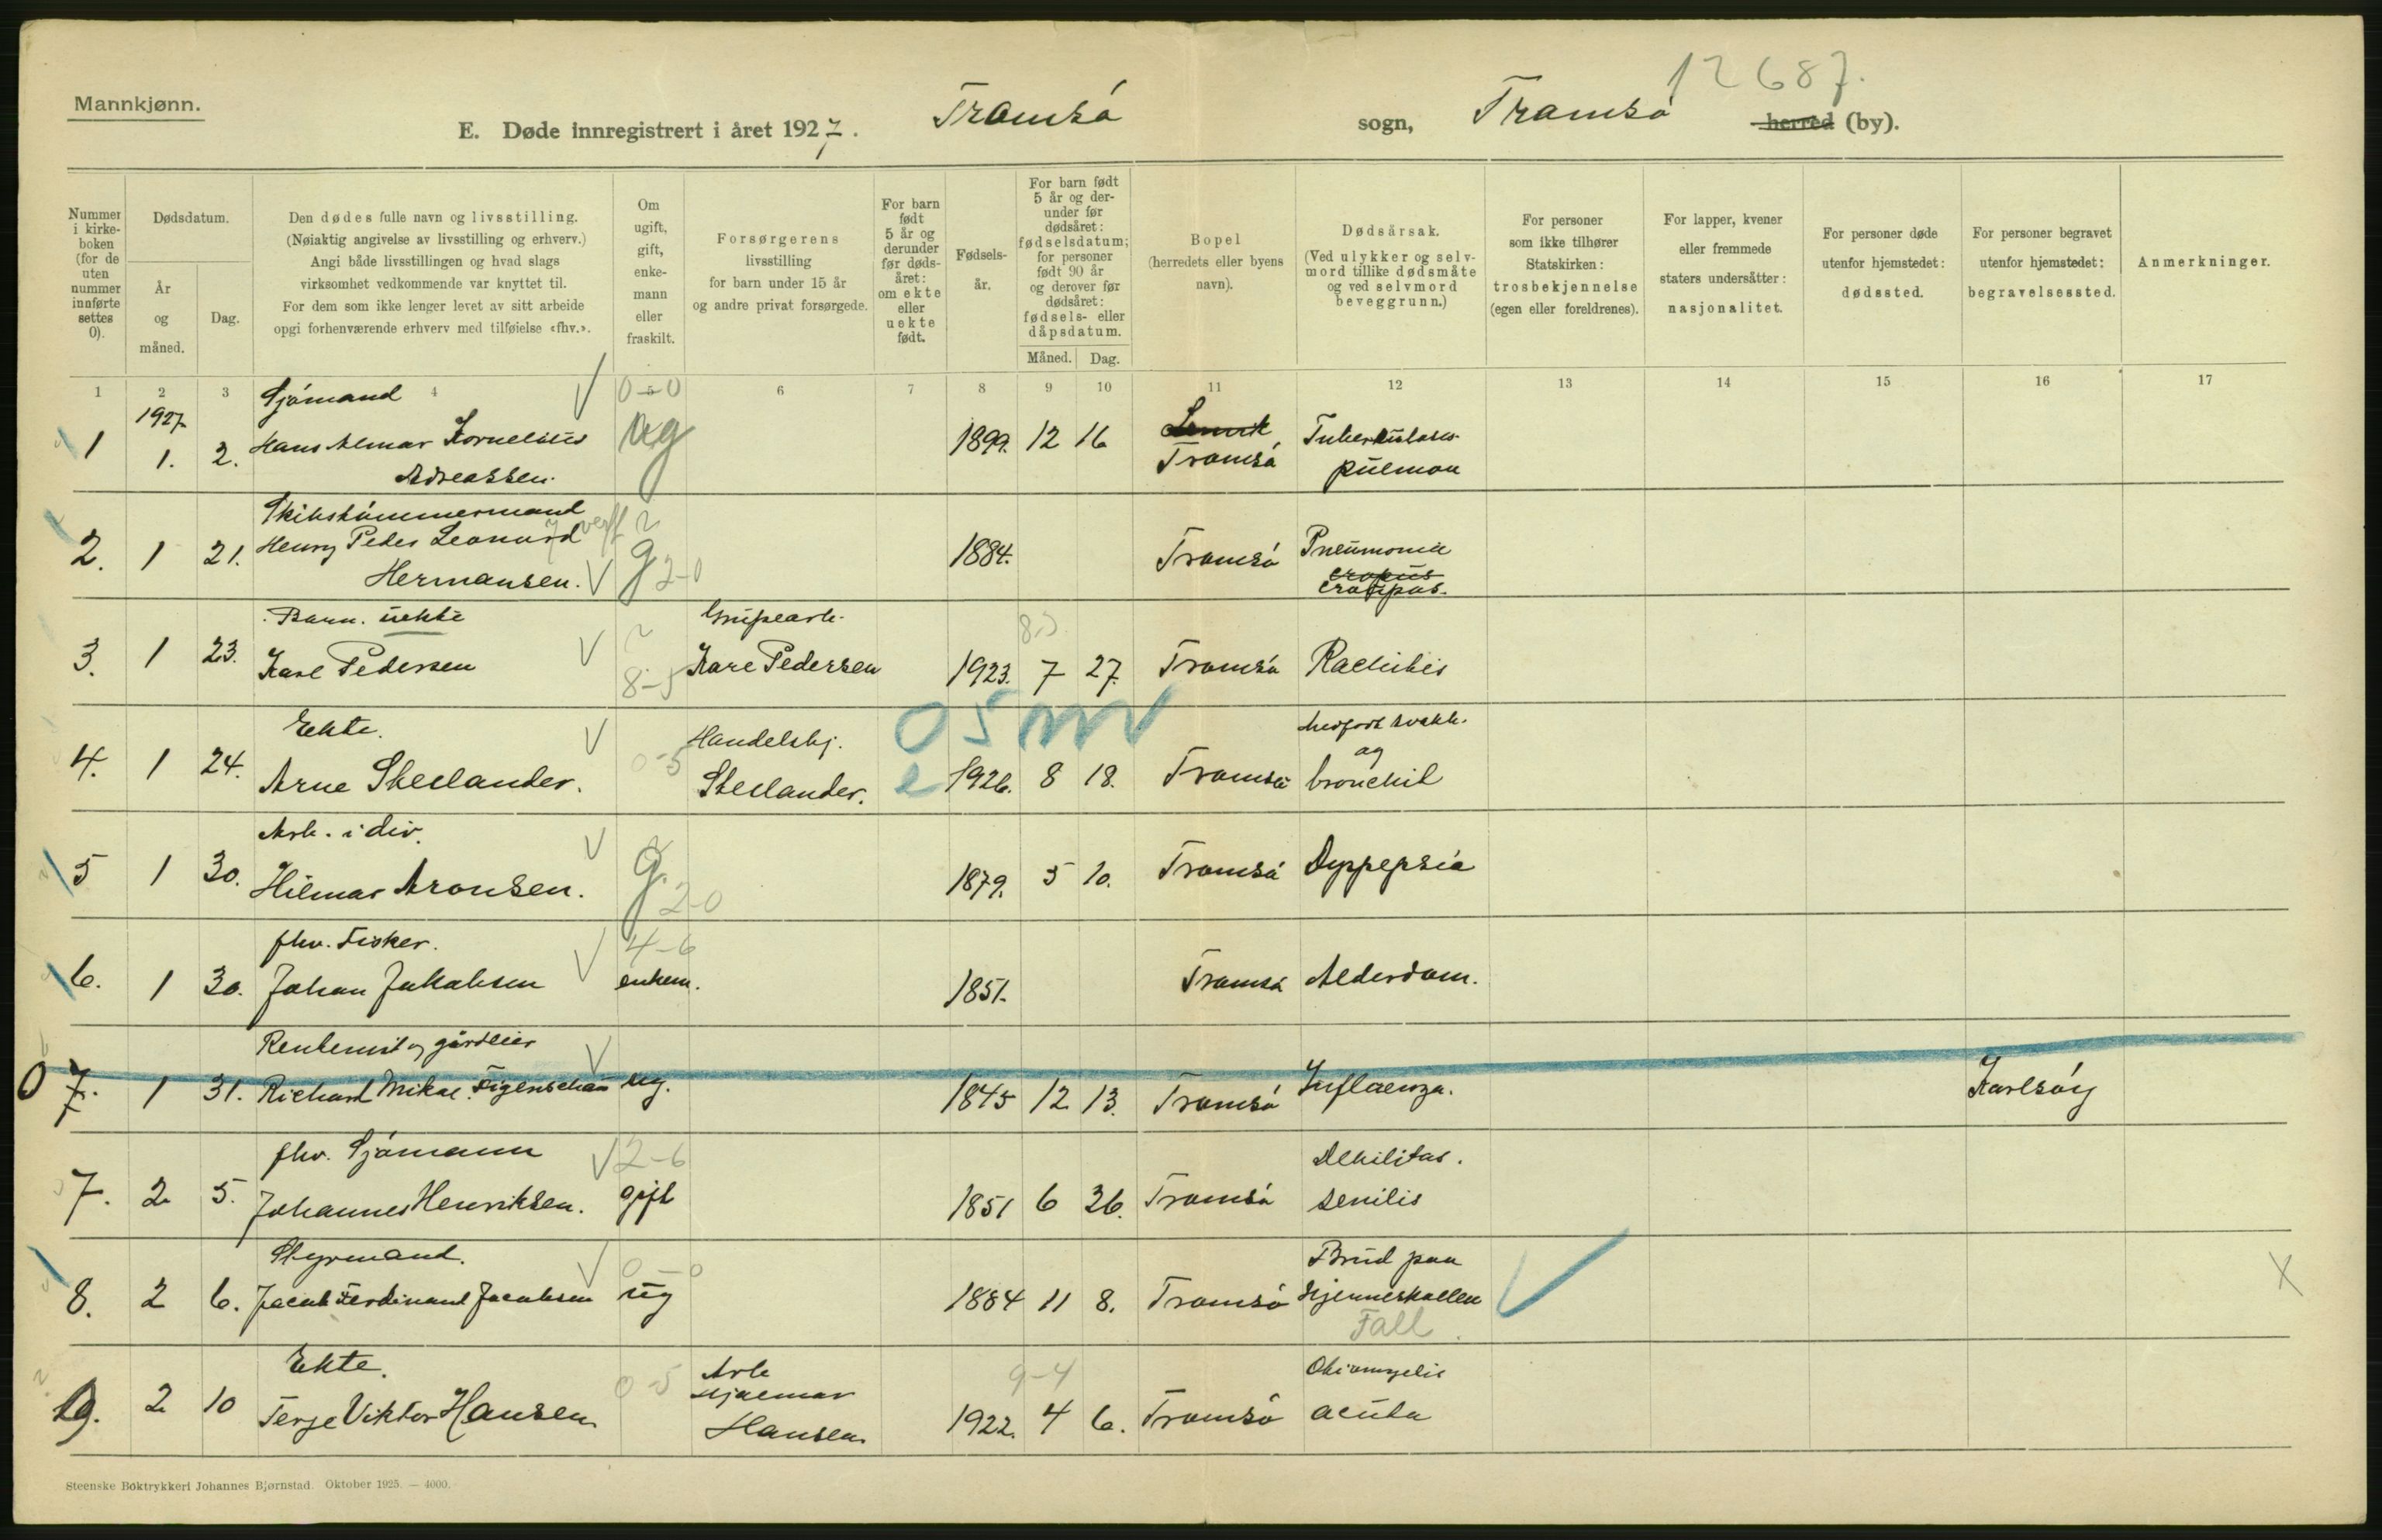 12687.
Mannkjønn.
E. Døde innregistrert i året 1927. Tromsø sogn, Tromsø herred (by).
Nummer i kirke-boken (for de uten nummer innførte settes 0).
Dødsdatum.
År og måned.
Dag.
Den dødes fulle navn og livsstilling.
(Nøiaktig angivelse av livsstilling og erhverv.)
Angi både livsstillingen og hvad slags
virksomhet vedkommende var knyttet til.
For dem som ikke lenger levet av sitt arbeide
opgi forhenværende erhverv med tilføielse «fhv.».
Om ugift, gift, enke-mann eller fraskilt.
Forsørgerens
livsstilling
for barn under 15 år
og andre privat forsørgede.
For barn født 5 år og derunder før døds-året: om ekte eller uekte født.
Fødsels-år.
For barn født 5 år og der-under før dødsåret: fødselsdatum; for personer født 90 år og derover før dødsåret: fødsels- eller dåpsdatum.
Måned. Dag.
Bopel
(herredets eller byens navn).
Dødsårsak.
(Ved ulykker og selv-mord tillike dødsmåte og ved selvmord beveggrunn.)
For personer
som ikke tilhører
Statskirken:
trosbekjennelse
(egen eller foreldrenes).
For lapper, kvener
eller fremmede
staters undersåtter:
nasjonalitet.
For personer døde
utenfor hjemstedet:
dødssted.
For personer begravet
utenfor hjemstedet:
begravelsessted.
Anmerkninger.
1 2 3 4 5 6 7 8 9 10 11 12 13 14 15 16 17
Sjømand 0-0
1927
1 1. 2. Hans Almar Kornelius ug 1899. 12 16 Tromsø Tuberkulosis
Adreassen. pulmon
Skibstømmermand verft
2. 1 21. Henry Peder Leonard g 1884. Tromsø Pneumonia
Hermansen. 2-0 cropus
croupøs.
Barn. uekte
3. 1 23. Kare Pedersen 8-5 Kare Pedersen 1923. 7 27. Tromsø Rachitis
Ekte. Handelsbj. 05 medfødt svakh.
og
4. 1 24. Arne Skeelander. 0-5 Skeelander. e 1926. 8 18. Tromsø bronchit
Arb. i div.
5 1 30. Hilmar Aronsen. g. 2-0 1879. 5 10. Tromsø Dyppepsia
fhv. Fisker. 4-6
6. 1 30. Johan Jakobsen enkem. 1851. Tromsø Alderdom.
Rentenist og gårdeier
0 7. 1 31. Richard Mikal Figenschau ug. 1845 12 13. Tromsø Influenza. Karlsøy
fhv. Sjømann 2-6 Debilitas.
7. 2 5. Johannes Henriksen. gift 1851 6 26. Tromsø senilis
Styrmand. 0-0 Brud paa
8. 2 6. Jacob Ferdinand Jacobsen ug 1884 11 8. Tromsø hjerneskallen X
Fall.
Ekte. Arb 9-4
Hjalmar
9. 2 10 Terje Viktor Hansen 0-5 Hansen 1922. 4 6. Tromsø acuta
Steenske Boktrykkeri Johannes Bjørnstad. Oktober 1925. — 4000.